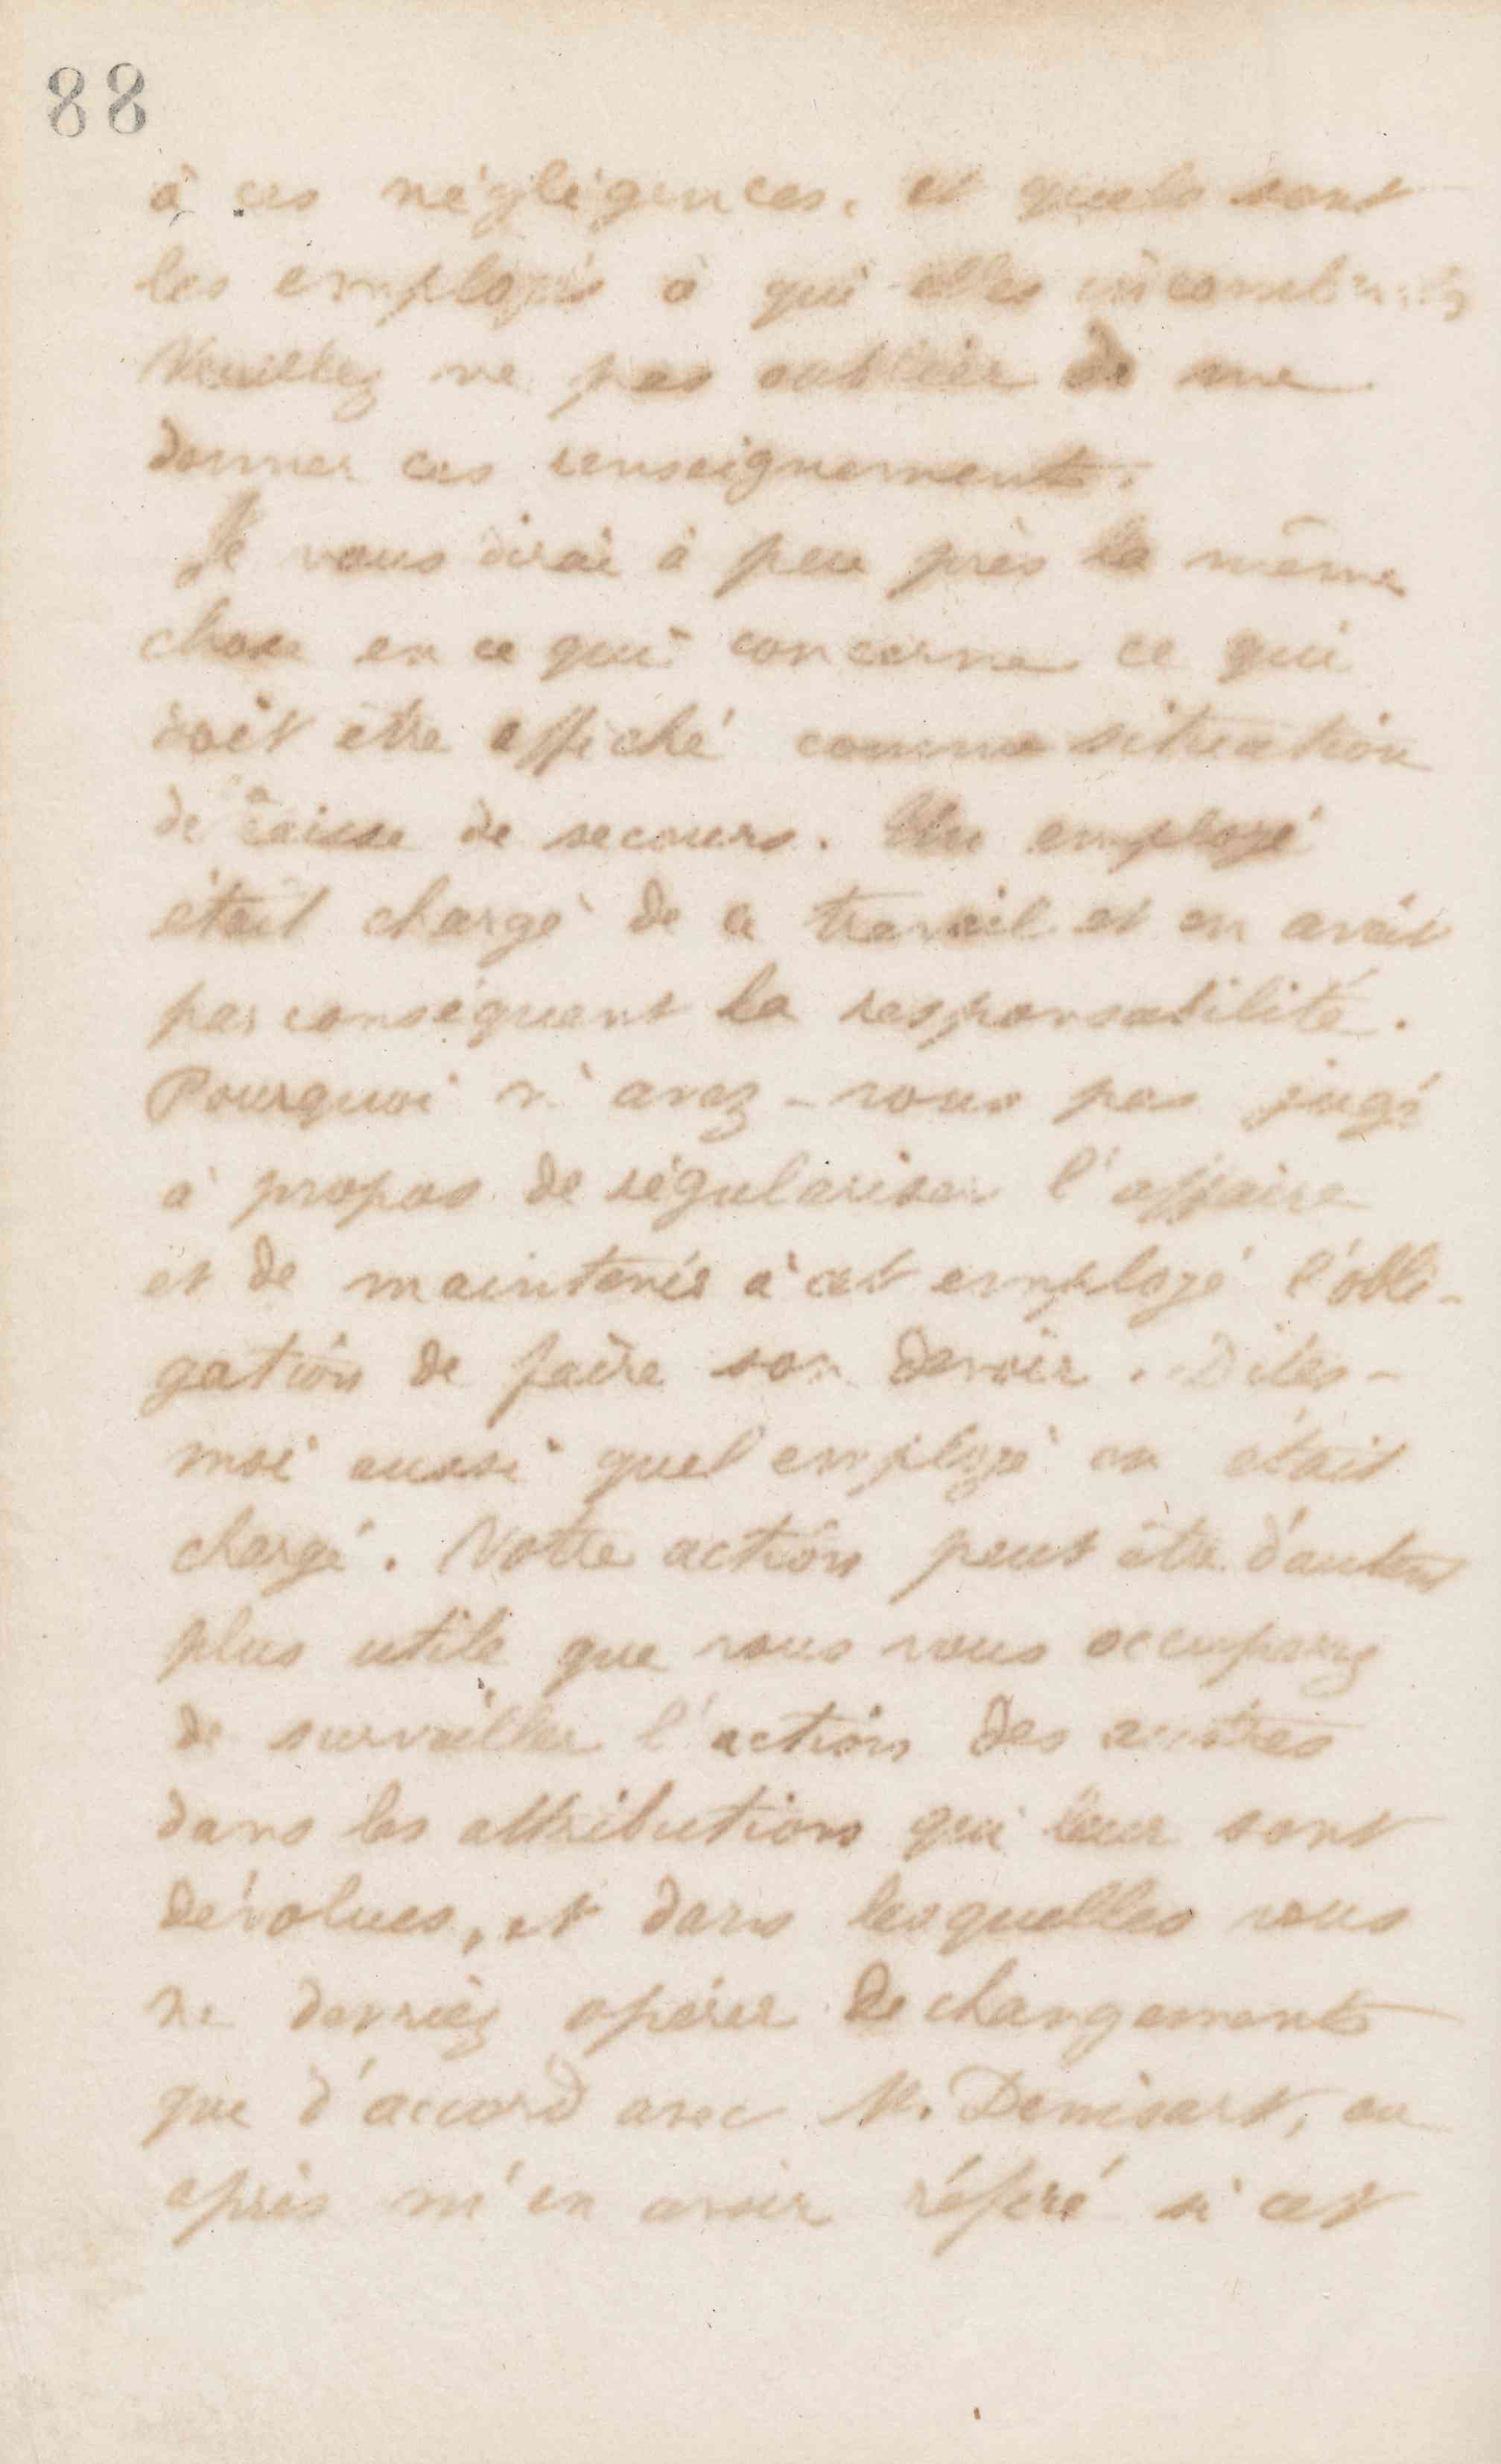 88
à ces négligences, et quels sont
les employés à qui elles incombent,
Veuillez ne pas oublier de me
donner ces renseignements.
Je vous dirai à peu près la même
chose en ce qui concerne ce qui
doit être affiché comme situation
de la caisse de secours. Un employé
était chargé de ce travail et en avait
par conséquent la responsabilité.
Pourquoi n'avez-vous pas jugé
à propos de régulariser l'affaire
et de maintenir à cet employé l'obli-
gation de faire son devoir. Dites-
moi aussi quel employé en était
chargé. Votre action peut être d'autant
plus utile que vous vous occuperez
de surveiller l'action des autres
dans les attributions qui leur sont
dévolues, et dans lesquelles vous
ne devriez opérer de changements
que d'accord avec M. Denisart, ou
après m'en avoir référé si cet